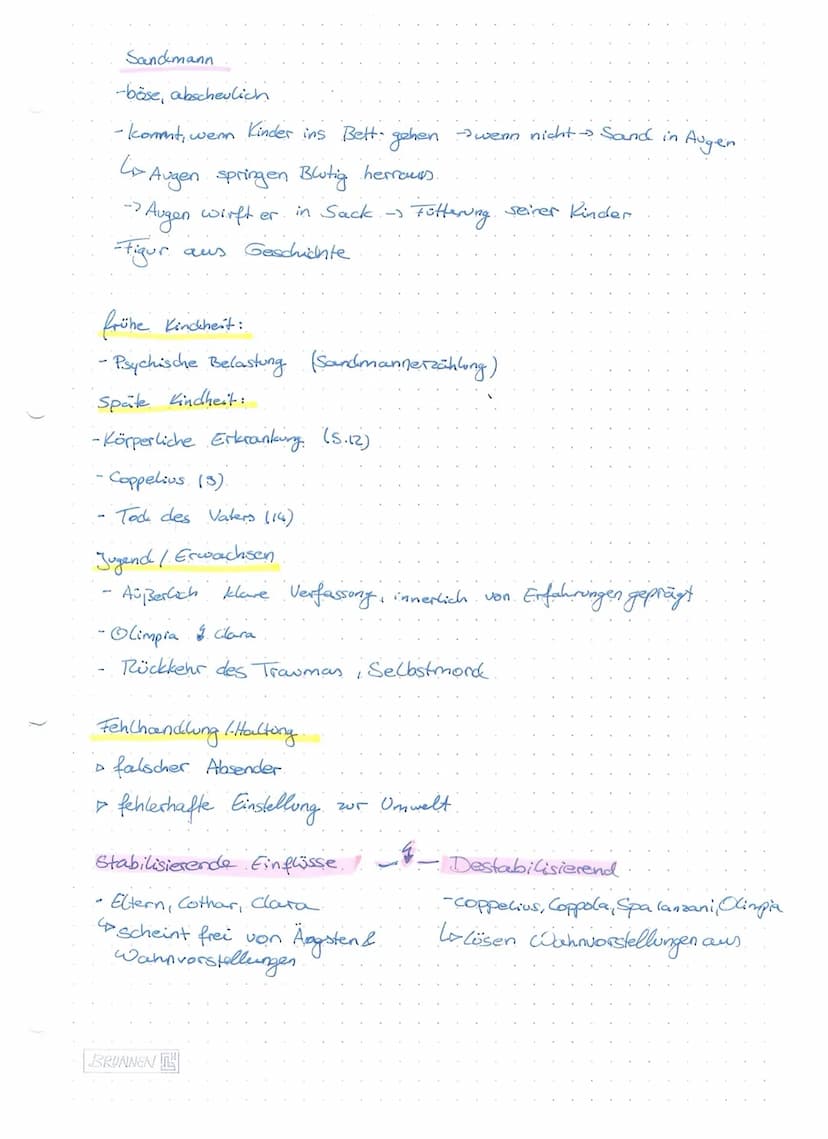 Sandmann
-böse, abscheulich
-kommt, wenn Kinder ins Bett gehen →wenn nicht→ Sand in Augen
↳ Augen springen Blutig herraus
→ Augen wirft er in Sack → Fütterung seiner Kinder
-Figur aus Geschichte
frühe Kindheit:
- Psychische Belastung (Sandmannerzählung)
Späte Kindheit:
-Körperliche Erkrankung (S.12)
- Coppelius (9)
- Tod des Vaters (14)
Jugend / Erwachsen
- Äußerlich klare Verfassung, innerlich von Erfahrungen geprägt
- Olimpia ↯ Clara
- Rückkehr des Traumas, Selbstmord
Fehlhandlung /-Haltung
▹ falscher Absender
▹ fehlerhafte Einstellung zur Umwelt
Stabilisierende Einflüsse —↯— Destabilisierend
- Eltern, Lothar, Clara
↳ scheint frei von Ängsten &
Wahnvorstellungen
-Coppelius, Coppola, Spalanzani, Olimpia
↳ Lösen Wahnvorstellungen aus
BRUNNEN